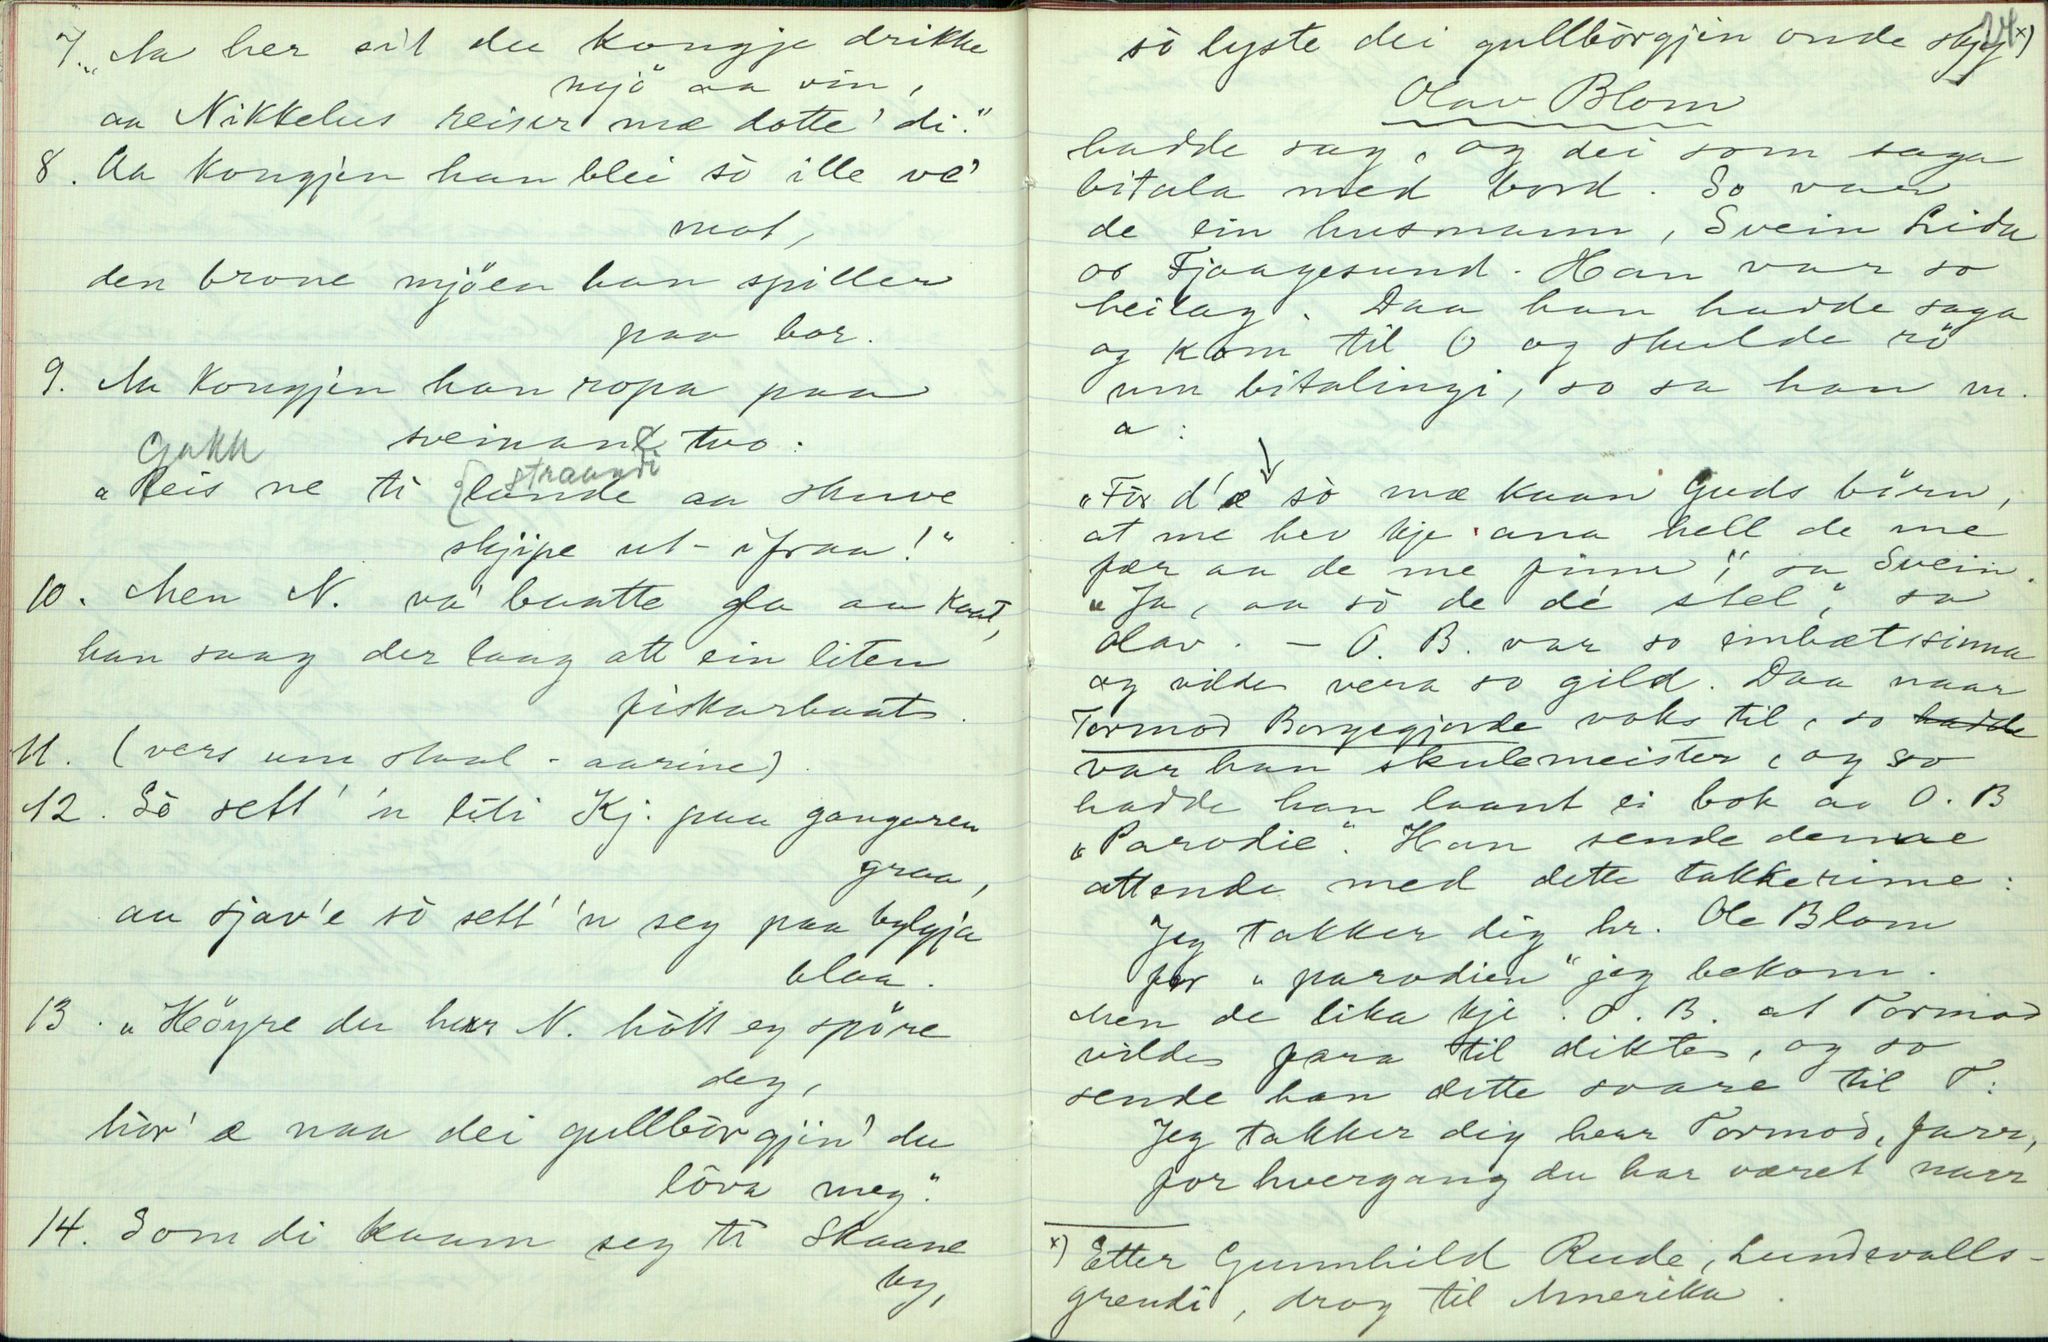 7. „Aa her sit du kongje drikke
mjö aa vin,
aa Nikkelus reiser mæ dotte' di."
8. Aa kongjen han blei sò ille ve'
mot,
den brone mjöen han spiller
paa bor.
9. Aa kongjen han ropa paa
sveinane two:
Gakk
straandi
„Reis ne ti lande aa skuve
skjipe ut-ifraa!"
10. Men N. va' baatte gla aa kaat,
han saag der laag att ein liten
fiskarbaat.
11. (vers um staal-aarine)
12. Sò sett' 'n liti Kj. paa gangaren
graa,
aa sjav'e sò sett' 'n seg paa bylgja
blaa.
13. „Höyre du herr N. hòtt eg spöre
deg,
hòr' æ naa dei gullbòrgjin' du
lòva meg".
14. Som di kaam seg ti Skaane
by,
24
sò lyste dei gullbòrgjin onde sky x)
Olav Blom
hadde sag, og dei som saga
bitala med bord. So var
de ein husmann, Svein Lida
os Fjaagesund. Han var so
heilag. Daa han hadde saga
og kom til O og skulde rö
um bitalingi, so sa han m.
a:
„Fòr d'æ sò mæ kaan Guds börn,
at me hev kje ana hell de me
fær aa de me finn", sa Svein.
„Ja, aa sò de dé stel", sa
Olav. – O. B. var so embætssinna
og vilde vera so gild. Daa naar
Tormod Borgegjorde voks til, so hadde
var han skulemeister, og so
hadde han laant ei bok av O. B
„Parodie". Han sende denne
attende med dette takkerime:
Jeg takker dig hr. Ole Blom
for „parodien" jeg bekom.
Men de lika kje O. B. at Tormod
vilde fara til dikte, og so
sende han dette svare til T:
Jeg takker dig herr Tormod, farr,
for hvergang du har været narr
x) Etter Gunnhild Rude, Lundevalls-
grendi, drog til Amerika.